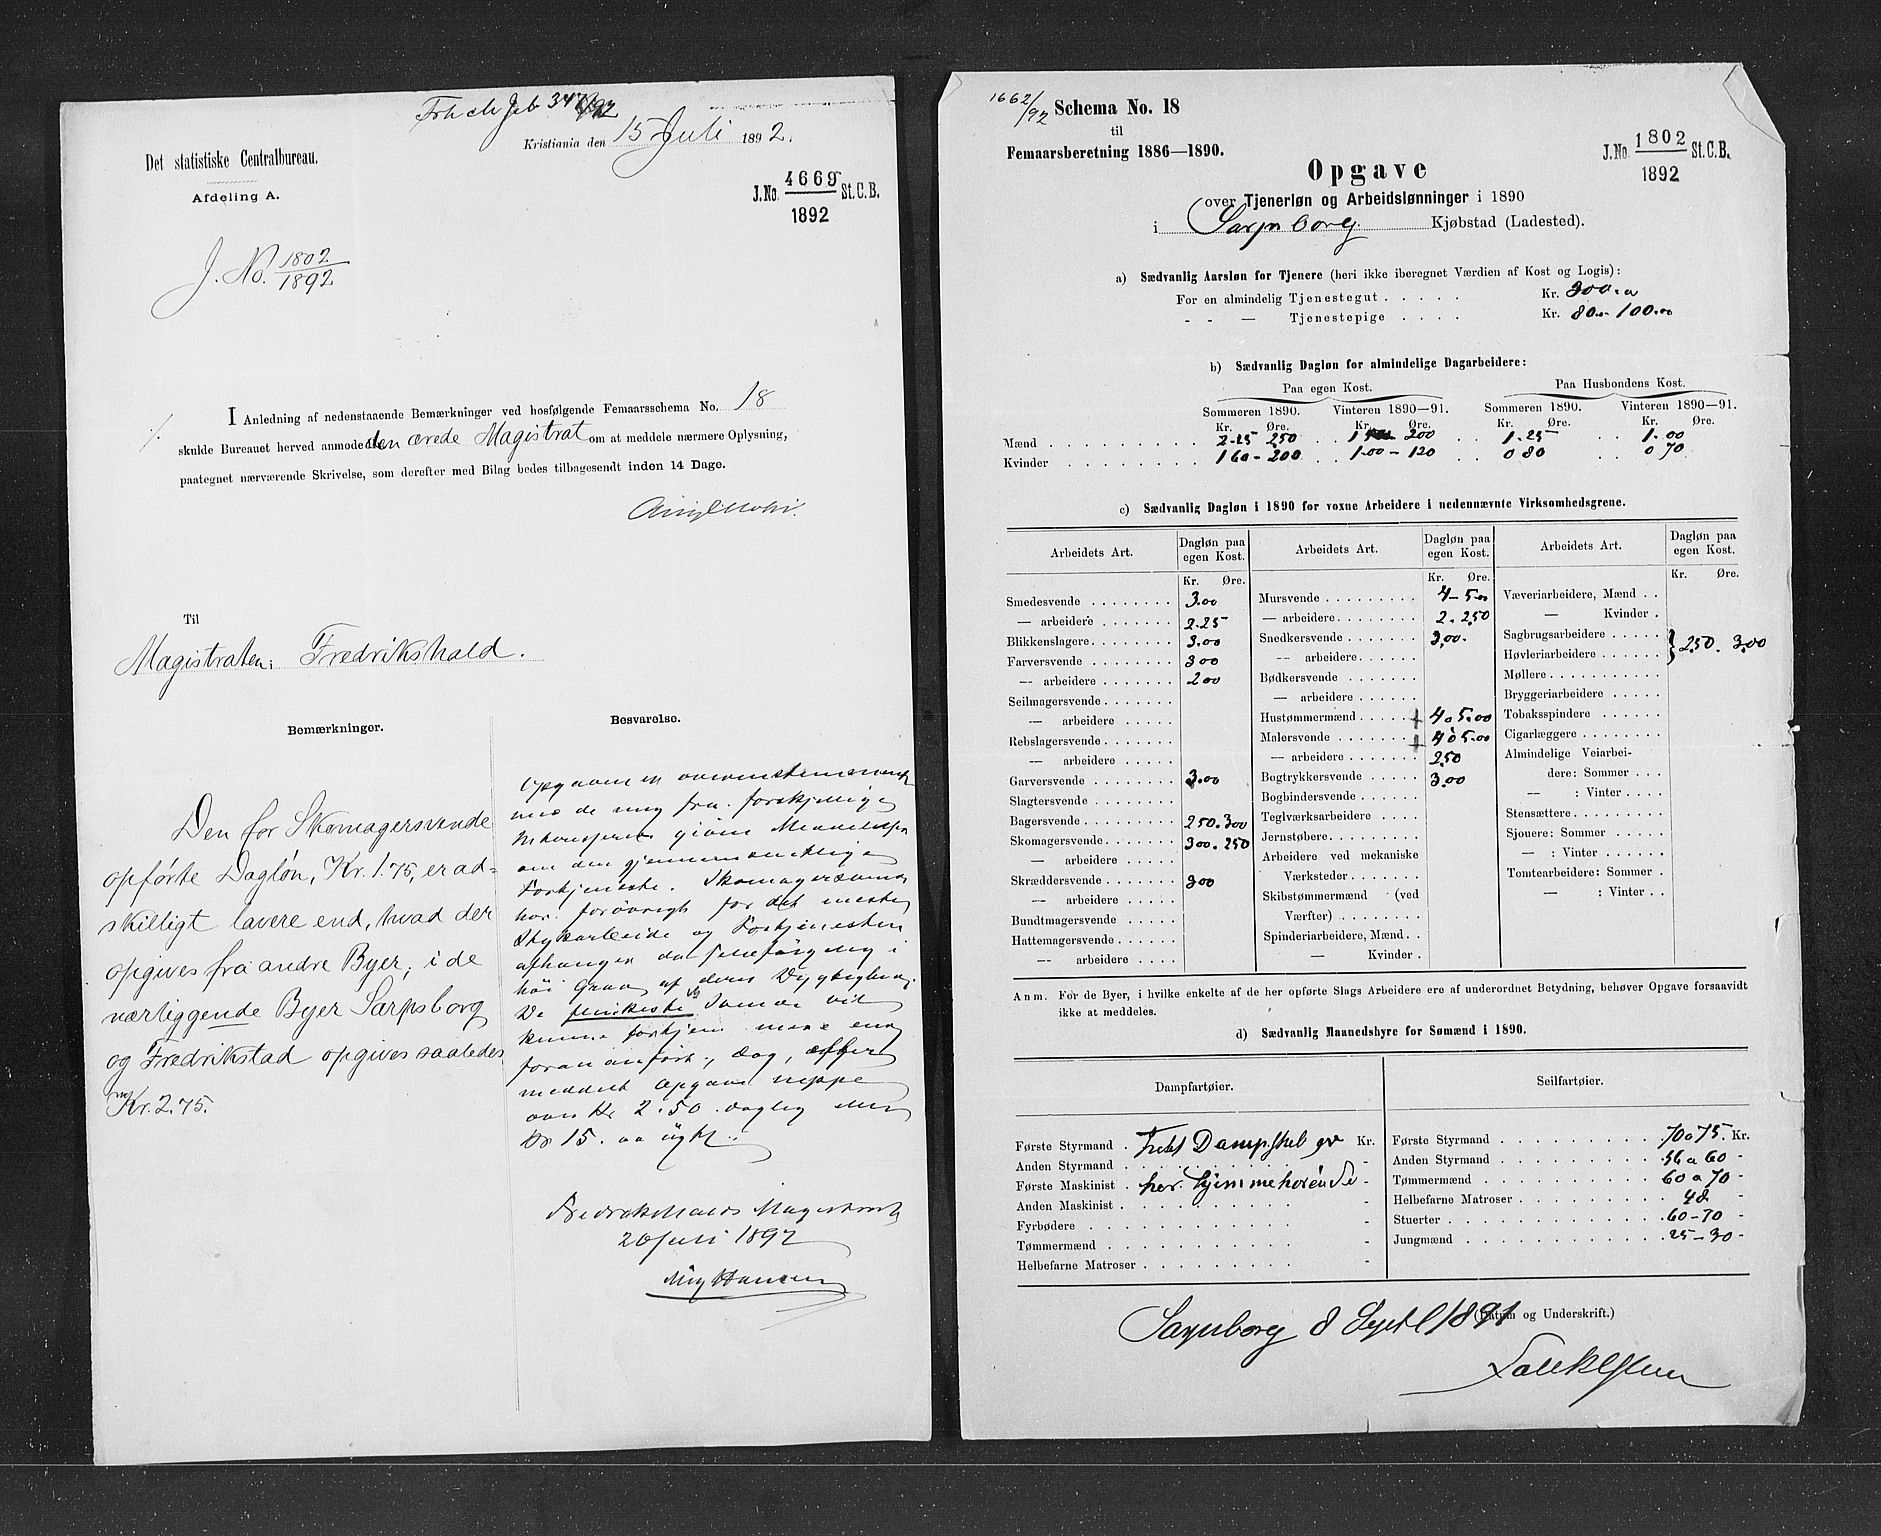 Kristiania den 15 Juli 1892.
Det statistiske Centralbureau.
Afdeling A.
J. No. 4669 St. C. B.
1892
J. No. 1802
1892
I Anledning af nedenstaaende Bemærkninger ved hosfølgende Femaarsschema No. 18
skulde Bureauet herved anmode den ærede Magistrat om at meddele nærmere Oplysning,
paategnet nærværende Skrivelse, som derefter med Bilag bedes tilbagesendt inden 14 Dage.
Til
Magistraten i Fredrikshald.
Bemærkninger.
Den for Skomagersvende
opførte Dagløn, Kr. 1.75, er ad-
skilligt lavere end, hvad der
opgives fra andre Byer; i de
nærliggende Byer Sarpsborg
og Fredrikstad opgives saaledes
Kr. 2.75.
Besvarelse.
Opgaven er overensstemmende
med de mig fra forskjellige
om den gjennemsnitlige
Fortjeneste. Skomagersvende
har forøvrigt for det meste
Stykarbeide og Fortjenesten
afhænger da selvfølgelig i
høi Grad af deres Dygtighed.
De flinkeste Svende vil
kunne fortjene mere end
foran anført, dog, efter
meddelt Opgave neppe
over Kr 2.50 daglig eller
Kr 15. oo ugtl.
Fredrikshalds Magistrat
20 Juli 1892
Aug Hansen
1662/92
Schema No. 18
til
Femaarsberetning 1886—1890.
J. No. 1802 St. C. B.
1892
Opgave
over Tjenerløn og Arbeidslønninger i 1890
i Sarpsborg Kjøbstad (Ladested).
a) Sædvanlig Aarsløn for Tjenere (heri ikke iberegnet Værdien af Kost og Logis):
For en almindelig Tjenestegut . . . . . Kr. 300.00
- - — Tjenestepige . . . . Kr. 80.00 - 100.00
b) Sædvanlig Dagløn for almindelige Dagarbeidere:
Paa egen Kost. Paa Husbondens Kost.
Sommeren 1890. Vinteren 1890—91. Sommeren 1890. Vinteren 1890—91.
Kr. Øre. Kr. Øre. Kr. Øre. Kr. Øre.
Mænd 2.25 250 200 1.25 1.00
Kvinder 160 - 200 1.00 - 120 0 80 0 70
c) Sædvanlig Dagløn i 1890 for voxne Arbeidere i nedennævnte Virksomhedsgrene.
Arbeidets Art. Dagløn paa egen Kost.
Kr. Øre.
Smedesvende 3.00
— arbeidere 2.25
Blikkenslagere 3.00
Farversvende 300
— arbeidere 200
Seilmagersvende
— arbeidere
Rebslagersvende
— arbeidere
Garversvende 3.00
Slagtersvende
Bagersvende 250.300
Skomagersvende 300.250
— arbeidere
Skræddersvende 300
— arbeidere
Bundtmagersvende
Hattemagersvende
— arbeidere
Arbeidets Art. Dagløn paa egen Kost.
Kr. Øre.
Mursvende 4 - 5.00
— arbeidere 2. 250
Snedkersvende 3,00.
— arbeidere
Bødkersvende
— arbeidere
Hustømmermænd 4 à 5.00
Malersvende 4 à 5.00
— arbeidere 250
Bogtrykkersvende 3.00
Bogbindersvende
Teglværksarbeidere
Jernstøbere
Arbeidere ved mekaniske
Værksteder
Skibstømmermænd (ved
Værfter)
Spinderiarbeidere, Mænd
— Kvinder
Arbeidets Art. Dagløn paa egen Kost.
Kr. Øre.
Væveriarbeidere, Mænd
— Kvinder
Sagbrugsarbeidere
Høvleriarbeidere } 250. 300
Møllere
Bryggeriarbeidere
Tobaksspindere
Cigarlæggere
Almindelige Veiarbei-
dere: Sommer
— : Vinter
Stensættere
Sjouere: Sommer
— : Vinter
Tomtearbeidere: Sommer
— : Vinter
Anm. For de Byer, i hvilke enkelte af de her opførte Slags Arbeidere ere af underordnet Betydning, behøver Opgave forsaavidt
ikke at meddeles.
d) Sædvanlig Maanedshyre for Sømænd i 1890.
Dampfartøier.
Første Styrmand Intet Dampskib er Kr.
Anden Styrmand -
Første Maskinist her hjemmehørende -
Anden Maskinist -
Fyrbødere -
Tømmermænd -
Helbefarne Matroser -
Seilfartøier.
Første Styrmand 70 à 75. Kr.
Anden Styrmand 56 a 60 -
Tømmermænd 60 a 70 -
Helbefarne Matroser 48 -
Stuerter 60-70 -
Jungmænd 25-30 -
Sarpsborg 8 Septb 1891
(Datum og Underskrift.)